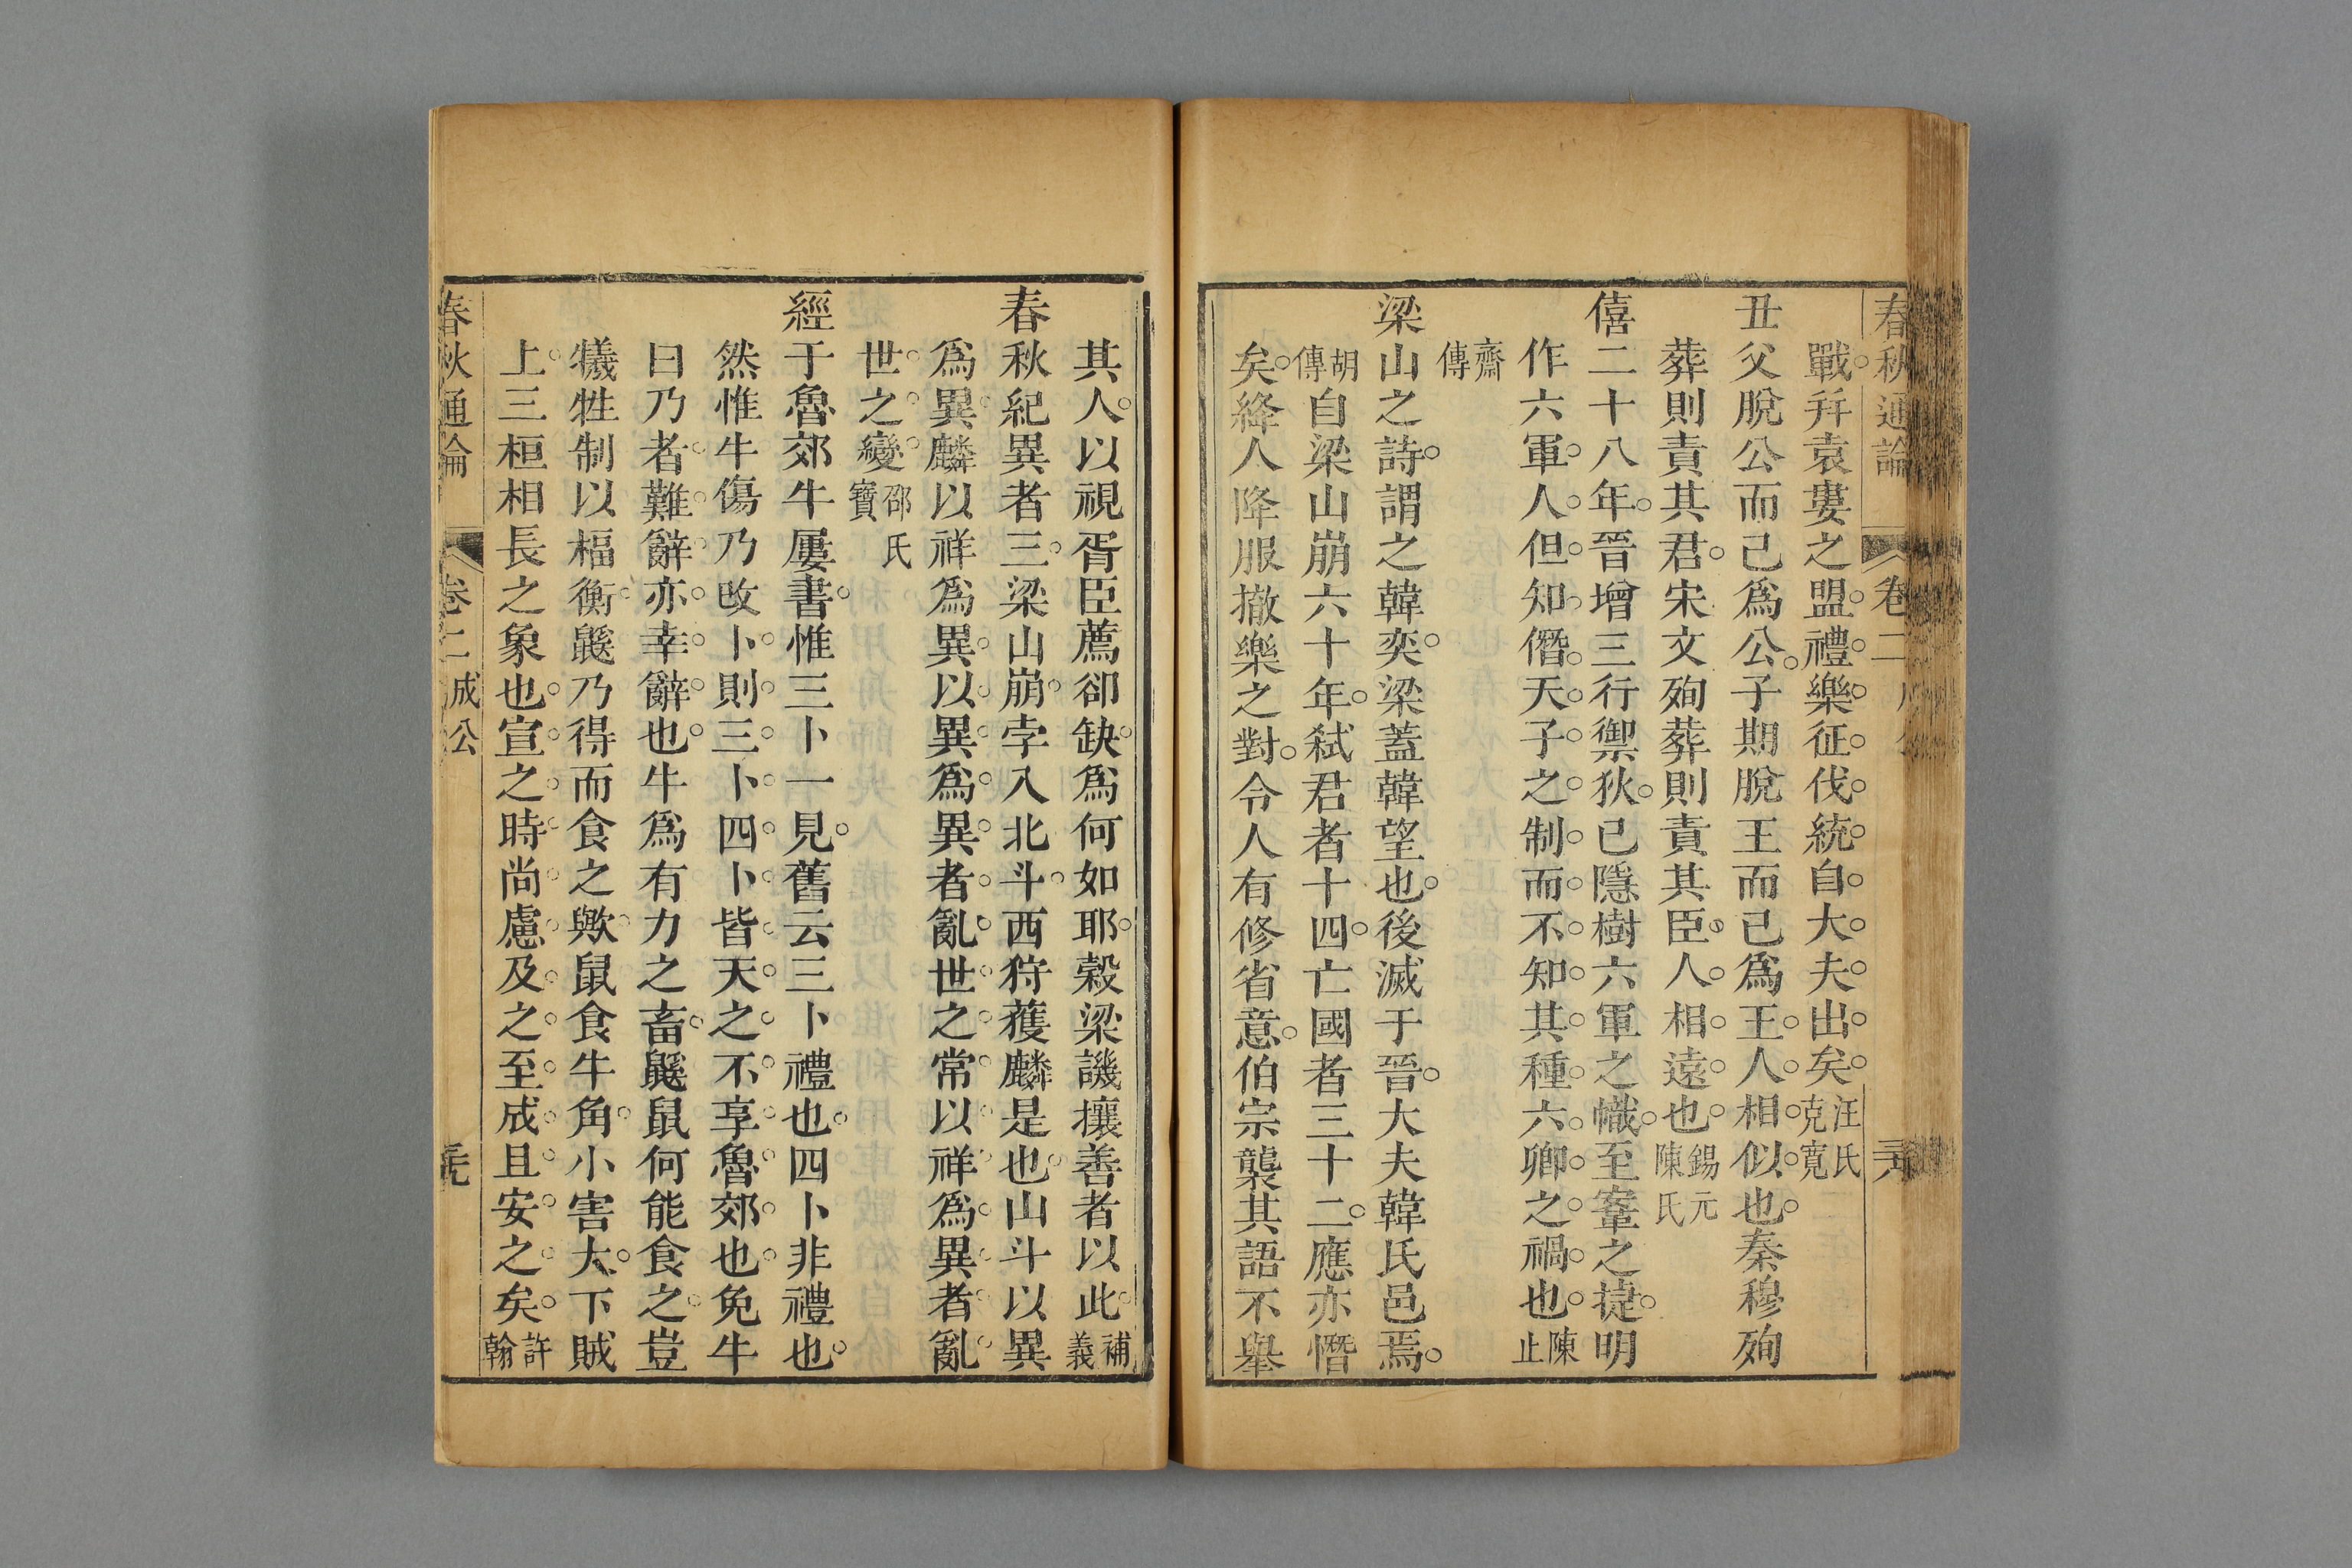 春秋通論 卷二
戰幷袁婁之盟禮樂征伐統自大夫出矣汪氏克寬
丑父脫公而己爲公子期脫王而己爲王人相似也秦穆殉
葬則責其君宋文殉葬則責其臣人相遠也錫元陳氏
僖二十八年晉增三行禦狄已隱樹六軍之幟至鞌之捷明
作六軍人但知僭天子之制而不知其種六卿之禍也陳止
齋傳
梁山之詩謂之韓奕梁蓋韓望也後滅于晉大夫韓氏邑焉
胡傳自梁山崩六十年弒君者十四亡國者三十二應亦憯
矣絳人降服撤樂之對令人有修省意伯宗襲其語不舉
其人以視胥臣薦卻缺爲何如耶穀梁譏攘善者以此補義
春秋紀異者三梁山崩孛入北斗西狩獲麟是也山斗以異
爲異麟以祥爲異以異爲異者亂世之常以祥爲異者亂
世之變邵氏寶
經于魯郊牛屢書惟三卜一見舊云三卜禮也四卜非禮也
然惟牛傷乃改卜則三卜四卜皆天之不享魯郊也免牛
曰乃者難辭亦幸辭也牛爲有力之畜鼷鼠何能食之豈
犧牲制以楅衡鼷乃得而食之歟鼠食牛角小害大下賊
上三桓相長之象也宣之時尚慮及之至成且安之矣許翰
春秋通論 卷二 成公